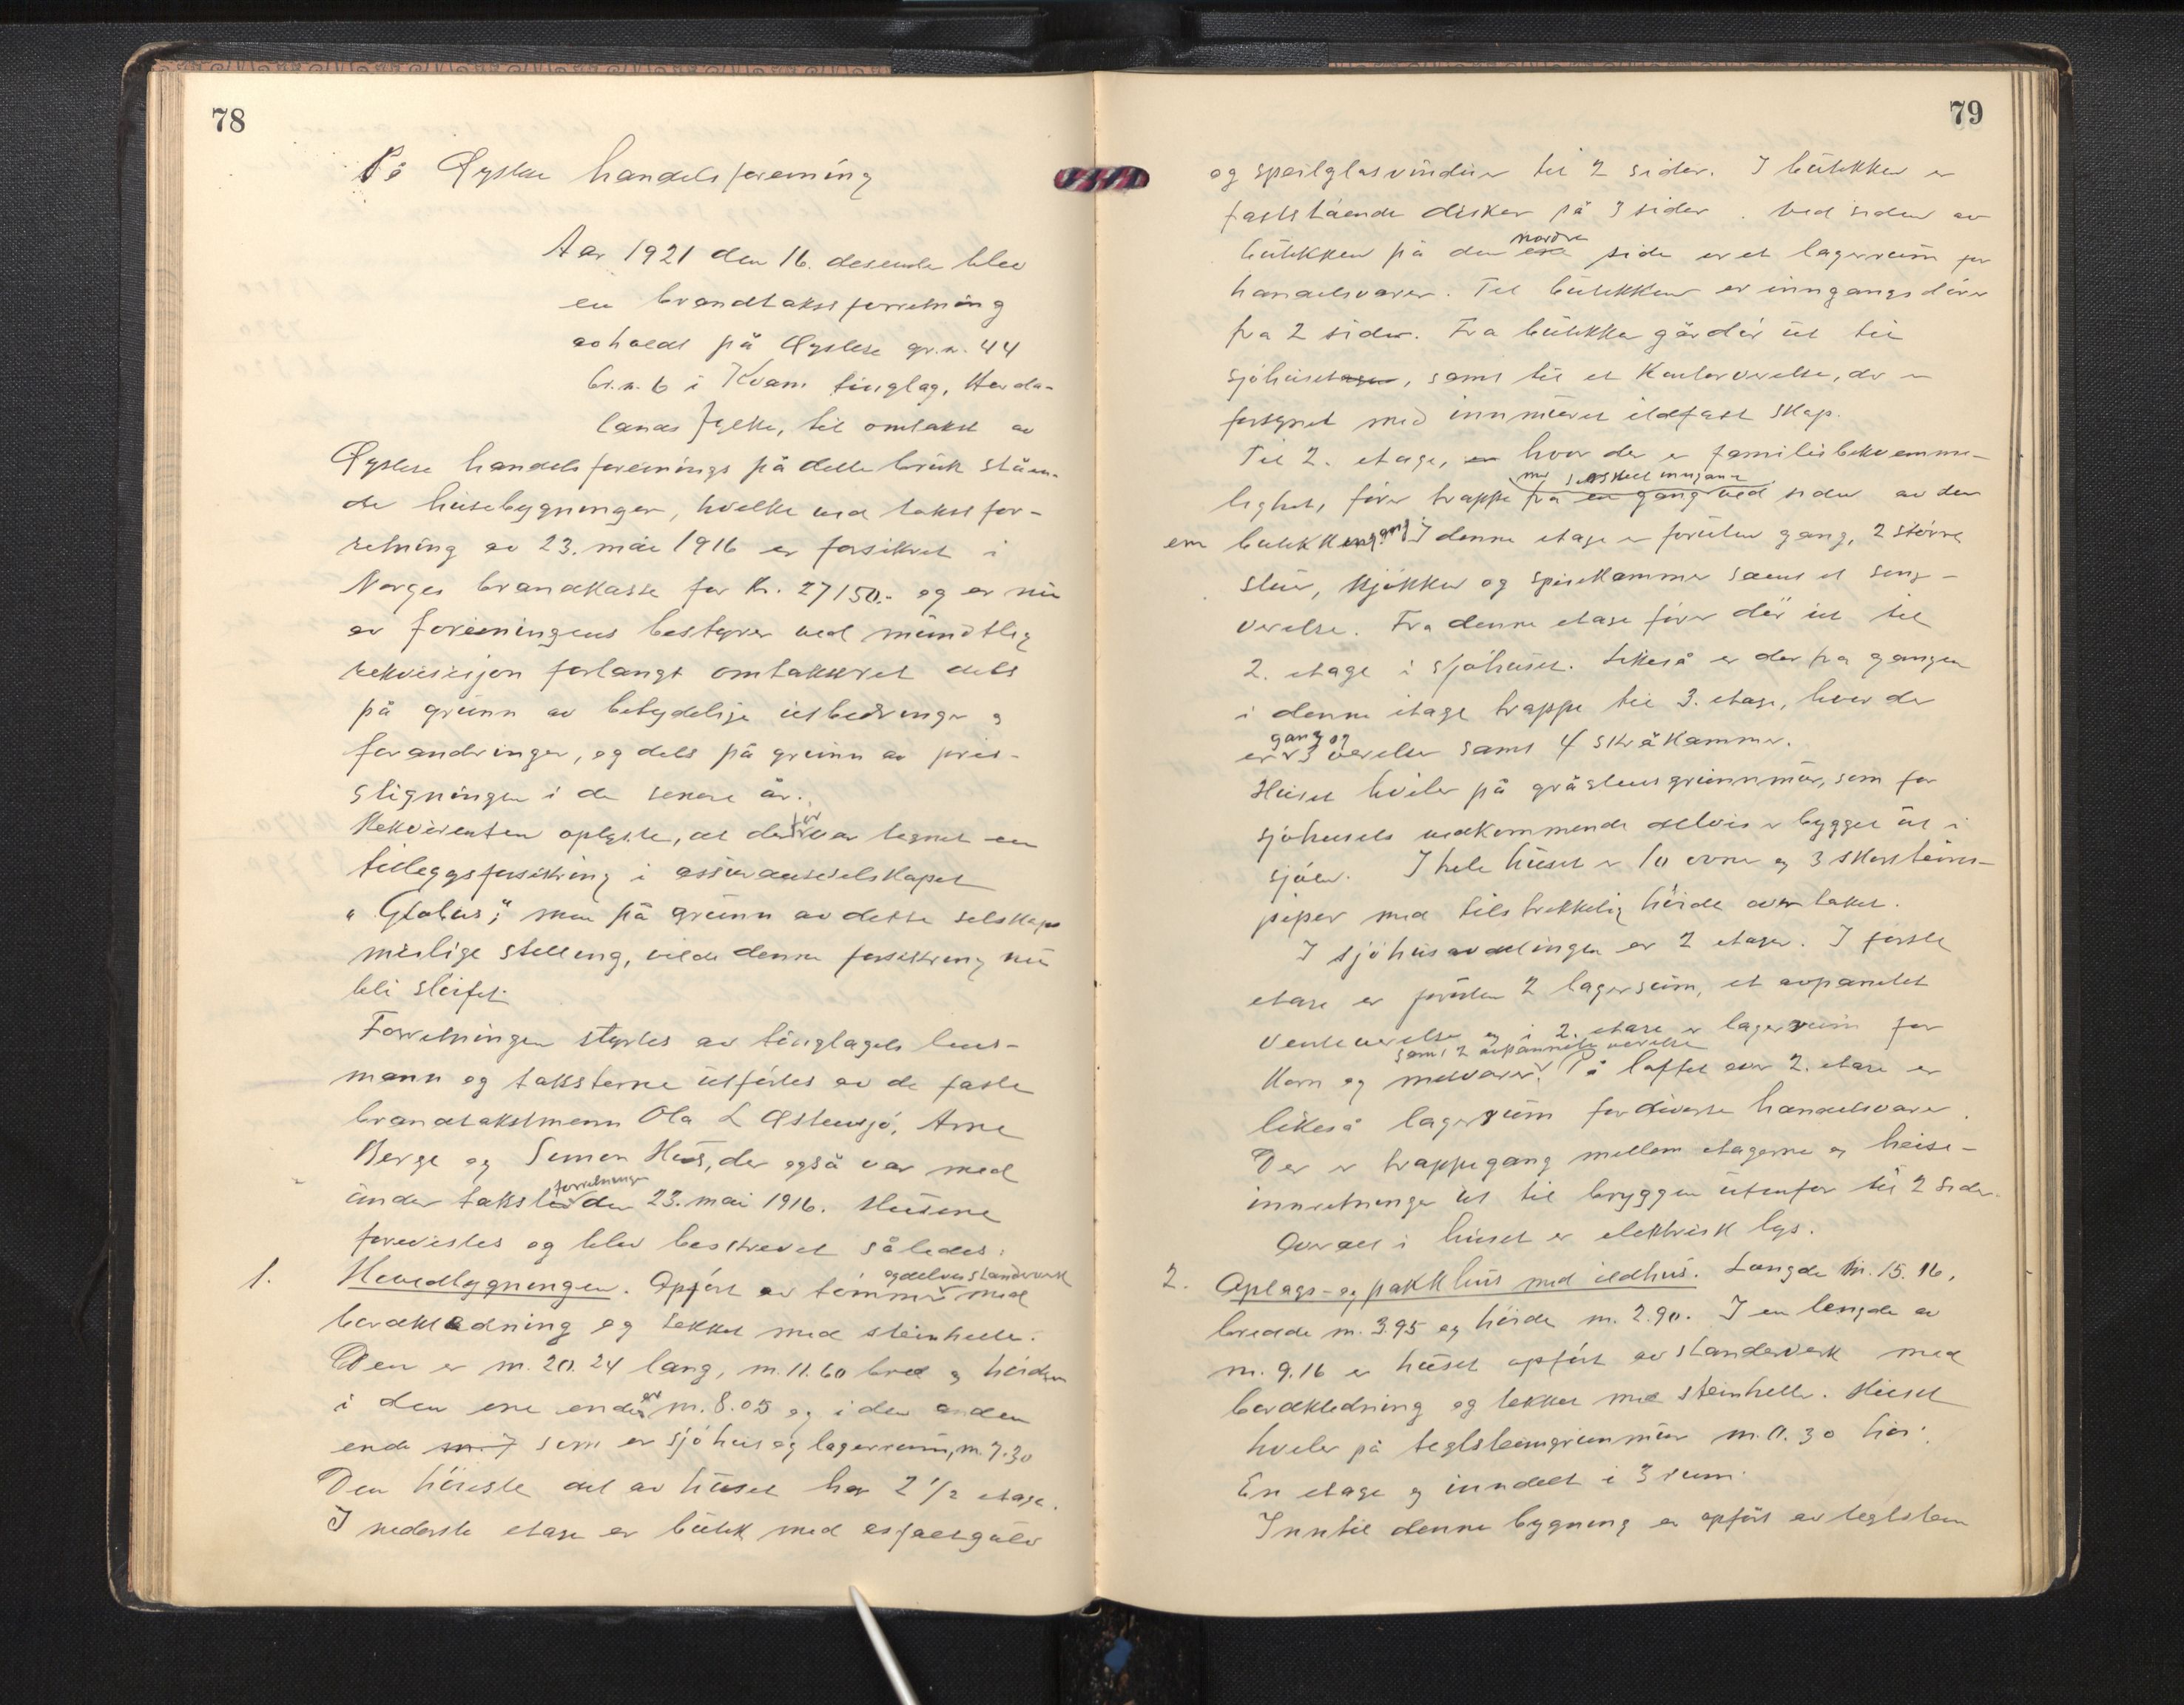 78
På Øystese handelsforening
Aar 1921 den 16. desember blev
en brandtakstforretning
avholdt på Øystese gr.n. 44
br.n. 6 i Kvam tinglag, Horda-
lands fylke, til omtakst av
Øystese handelsforenings på dette bruk ståen-
de husebygninger, hvilke ved takstfor-
retning av 23. mai 1916 er forsikret i
Norges brandkasse for Kr. 27150.- og er nu
av foreningens bestyrer ved mundtlig
rekvisisjon forlangt omtakseret dels
på grunn av betydelige utbedringer og
forandringer, og dels på grunn av pris-
stigningen i de senere år.
Rekvirenten oplyste, at der før var tegnet en
tilleggsforsikring i assuranseselskapet
"Globus", men på grunn av dette selskaps
mislige stilling, vilde denne forsikring nu
bli sløifet.
Forretningen styrtes av tinglagets lens-
mann og taksterne utførtes av de faste
brandtakstmenn Ola L Østensjø, Arne
Berge og Simon Hus, der også var med
under takstforretningen den 23. mai 1916. Husene
forevistes og blev beskrevet således:
1. Hovedbygningen. Opført av tømmer og delvis standerverk med
bordklædning og tekket med steinheller.
Den er m. 20.24 lang, m. 11.60 bred og høiden
i den ene ende er m. 8.05 og i den anden
ende m. 7 som er sjøhus og lagerrum, m. 7.30
Den høieste del av huset har 2 1/2 etage.
I nederste etage er butik med asfaltgulv
79
og speilglasvinduer til 2 sider. I butikken er
faststående disker på 3 sider. Ved siden av
butikken på den nordre side er et lagerrum for
handelsvarer. Til butikken er inngangsdører
fra 2 sider. Fra butikken går dør ut til
sjøhuset, samt til et kontorværelse, der er
forsynet med innmuret ildfast skap.
Til 2. etage, hvor der er familiebekvemme-
lighet, fører trappe med særskilt inngang fra en gang ved siden av den
em butikkinngang. I denne etage er foruten gang, 2 større
stuer, kjøkken og spisekammer samt et seng-
verelse. Fra denne etage fører dør ut til
2. etage i sjøhuset. Likeså er der fra gangen
i denne etage trappe til 3. etage, hvor der
er gang og 3 værelser samt 4 skråkammer.
Huset hviler på gråstensgrunnmur, som for
sjøhusets vedkommende delvis er bygget ut i
sjøen. I hele huset er 10 ovne og 3 skorsteins-
piper med tilstrekkelig høide over taket.
I sjøhusavdelingen er 2 etager. I første
etage er foruten 2 lagerrum, et avpanelet
venteværelse og i 2. etage er lagerrum for
korn og melvarer samt 2 avpannelte værelser. På loftet over 2. etage er
likeså lagerrum for diverse handelsvarer.
Der er trappegang mellem etagerne og heise-
innretninger ut til bryggen utenfor til 2 sider.
Overalt i huset er elektrisk lys.
2. Oplags- og pakkhus med ildhus. Længde m. 15.16,
bredde m. 3.95 og høide m. 2.90. I en lengde av
m. 9.16 er huset opført av standerverk med
bordkledning og tekket med steinheller. Huset
hviler på teglsteinsgrunnmur m. 0.30 høi.
En etage og inndelt i 3 rum.
Inntil denne bygning er opført av teglsten